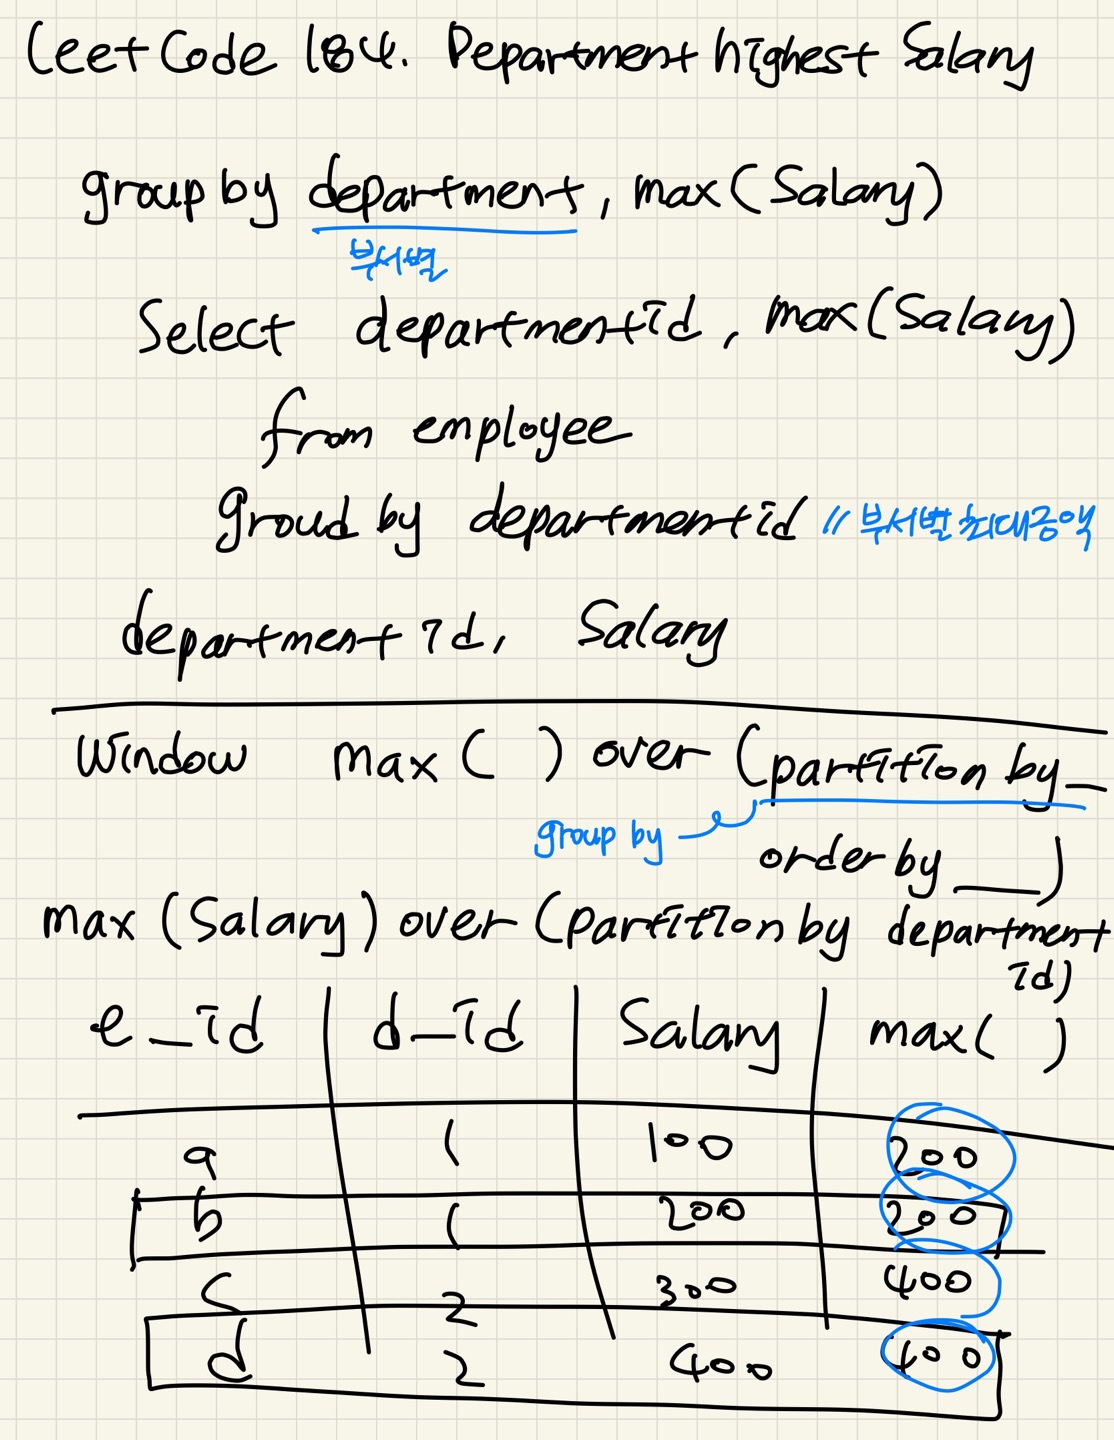 LeetCode 184. Department highest Salary
group by department, max(Salary)
부서별
Select departmentid, max(Salary)
from employee
groud by departmentid // 부서별 최대금액
department id, Salary
Window max( ) over (partition by _
group by
order by ___)
max (Salary) over (Partition by department
id)
e_id d_id Salary max( )
a 1 100 200
b 1 200 200
c 2 300 400
d 2 400 400